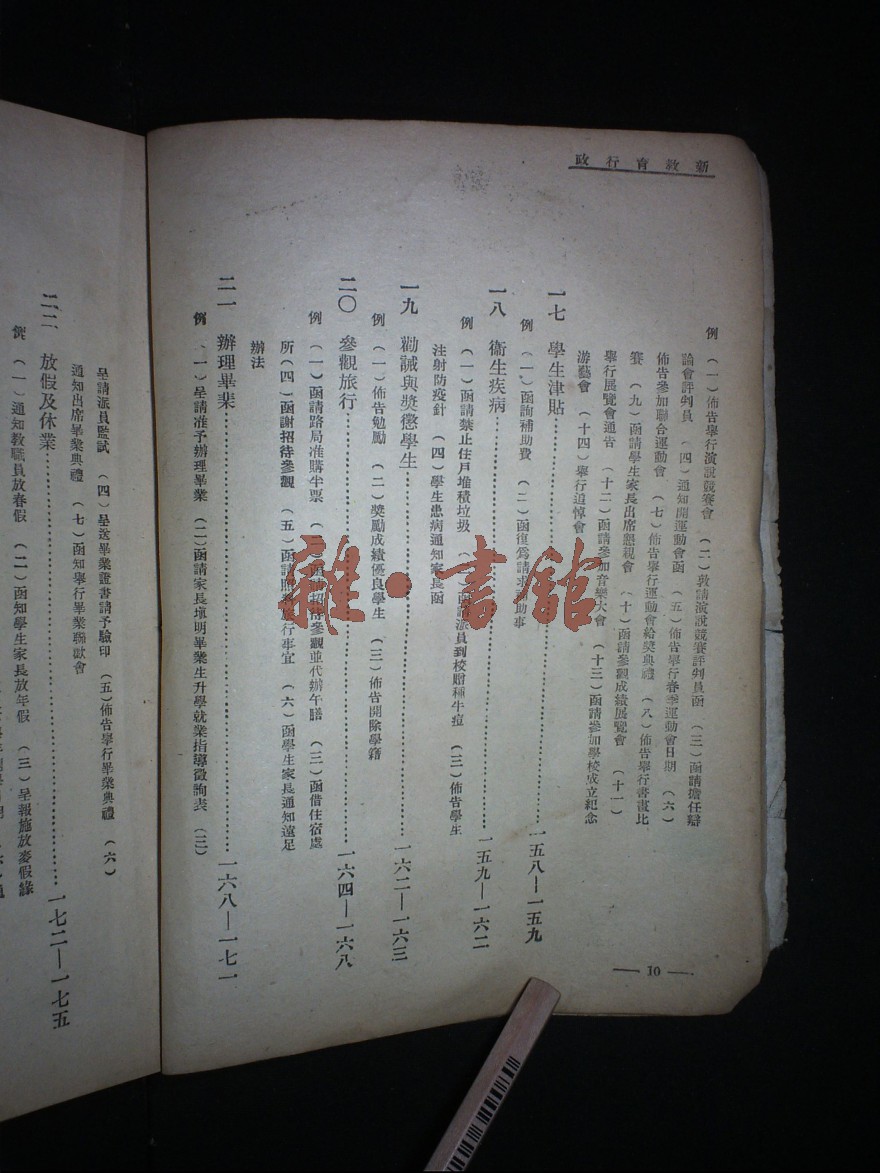 新教育行政
例　(一)佈告舉行演說競賽會　(二)敦請演說競賽評判員函　(三)函請擔任辯
論會評判員　(四)通知開運動會函　(五)佈告舉行春季運動會日期　(六)
佈告參加聯合運動會　(七)佈告舉行運動會給獎典禮　(八)佈告舉行書畫比
賽　(九)函請學生家長出席懇親會　(十)函請參觀成績展覽會　(十一)
舉行展覽會通告　(十二)函請參加音樂大會　(十三)函請參加學校成立紀念
游藝會　(十四)舉行追悼會
一七　學生津貼……一五八—一五九
例　(一)函詢補助費　(二)函復爲請求補助事
一八　衞生疾病……一五九—一六二
例　(一)函請禁止住戶堆積垃圾　函請派員到校贈種牛痘　(三)佈告學生
注射防疫針　(四)學生患病通知家長函
一九　勸誡與獎懲學生……一六二—一六三
例　(一)佈告勉勵　(二)獎勵成績優良學生　(三)佈告開除學籍
二〇　參觀旅行……一六四—一六八
例　(一)函請路局准購半票　函請招待參觀並代辦午膳　(三)函借住宿處
所　(四)函謝招待參觀　(五)函請旅行事宜　(六)函學生家長通知遠足
辦法
二一　辦理畢業……一六八—一七一
例　(一)呈請准予辦理畢業　(二)函請家長塡明畢業生升學就業指導徵詢表　(三)
10
呈請派員監試　(四)呈送畢業證書請予驗印　(五)佈告舉行畢業典禮　(六)
通知出席畢業典禮　(七)函知舉行畢業聯歡會
二二　放假及休業……一七二—一七五
例　(一)通知教職員放春假　(二)函知學生家長放年假　(三)呈報施放麥假緣
雜·書館